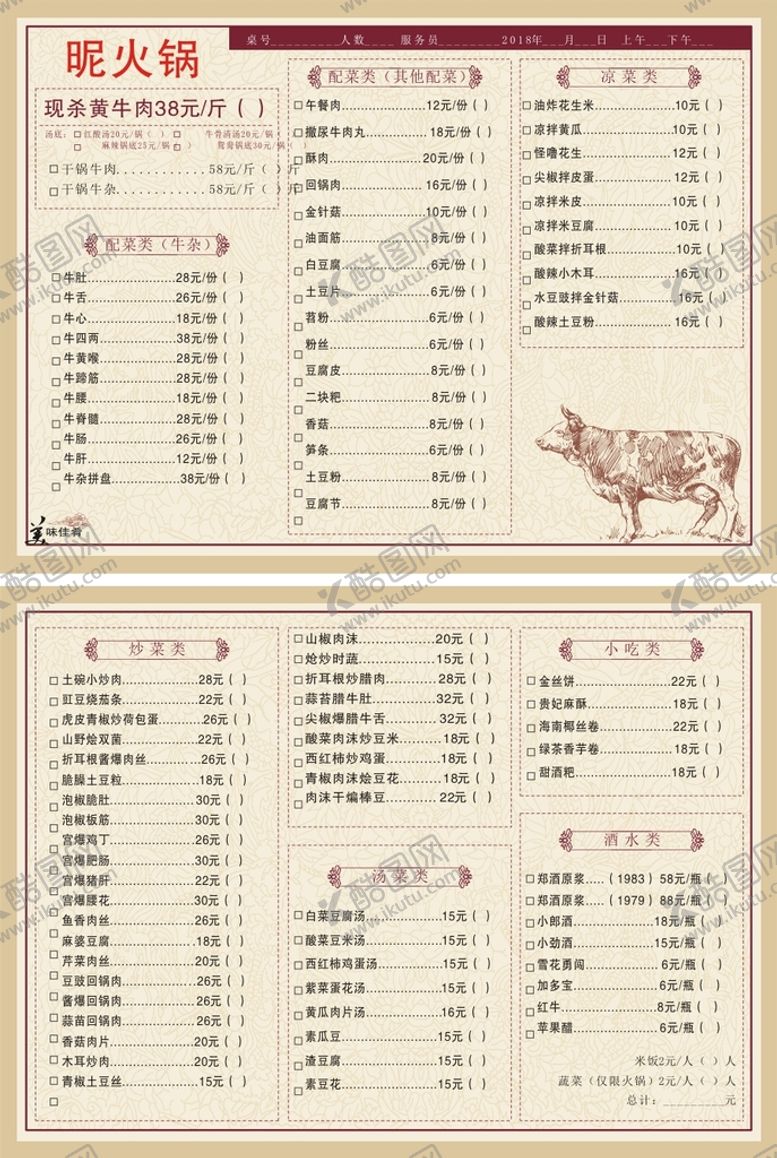 桌号_________人数____ 服务员________2018年___月___日 上午___下午___
昵火锅
现杀黄牛肉38元/斤（ ）
汤底： 红酸汤20元/锅（ ） 牛骨清汤20元/锅
麻辣锅底25元/锅（ ） 鸳鸯锅底30元/锅（ ）
干锅牛肉............58元/斤（ ）斤
干锅牛杂............58元/斤（ ）斤
配菜类（牛杂）
牛肚......................28元/份（ ）
牛舌......................26元/份（ ）
牛心......................18元/份（ ）
牛四两...................38元/份（ ）
牛黄喉...................28元/份（ ）
牛蹄筋...................28元/份（ ）
牛腰......................18元/份（ ）
牛脊髓...................28元/份（ ）
牛肠......................26元/份（ ）
牛肝......................12元/份（ ）
牛杂拼盘................38元/份（ ）
美味佳肴
配菜类（其他配菜）
午餐肉.....................12元/份（ ）
撒尿牛肉丸................18元/份（ ）
酥肉......................20元/份（ ）
回锅肉.....................16元/份（ ）
金针菇.....................10元/份（ ）
油面筋......................8元/份（ ）
白豆腐......................6元/份（ ）
土豆片......................6元/份（ ）
苕粉........................6元/份（ ）
粉丝........................6元/份（ ）
豆腐皮......................8元/份（ ）
二块粑......................8元/份（ ）
香菇........................8元/份（ ）
笋条........................6元/份（ ）
土豆粉......................8元/份（ ）
豆腐节......................8元/份（ ）
凉菜类
油炸花生米....................10元（ ）
凉拌黄瓜......................10元（ ）
怪噜花生......................12元（ ）
尖椒拌皮蛋....................12元（ ）
凉拌米皮......................10元（ ）
凉拌米豆腐....................10元（ ）
酸菜拌折耳根..................10元（ ）
酸辣小木耳....................16元（ ）
水豆豉拌金针菇................16元（ ）
酸辣土豆粉....................16元（ ）
炒菜类
土碗小炒肉....................28元（ ）
豇豆烧茄条....................22元（ ）
虎皮青椒炒荷包蛋............26元（ ）
山野烩双菌....................22元（ ）
折耳根酱爆肉丝..............26元（ ）
脆臊土豆粒....................18元（ ）
泡椒脆肚......................30元（ ）
泡椒板筋......................30元（ ）
宫爆鸡丁......................26元（ ）
宫爆肥肠......................30元（ ）
宫爆猪肝......................22元（ ）
宫爆腰花......................30元（ ）
鱼香肉丝......................26元（ ）
麻婆豆腐......................18元（ ）
芹菜肉丝......................20元（ ）
豆豉回锅肉....................26元（ ）
酱爆回锅肉....................26元（ ）
蒜苗回锅肉....................26元（ ）
香菇肉片......................20元（ ）
木耳炒肉......................20元（ ）
青椒土豆丝....................15元（ ）
山椒肉沫....................20元（ ）
炝炒时蔬....................15元（ ）
折耳根炒腊肉..............28元（ ）
蒜苔腊牛肚................32元（ ）
尖椒爆腊牛舌..............32元（ ）
酸菜肉沫炒豆米............18元（ ）
西红柿炒鸡蛋..............18元（ ）
青椒肉沫烩豆花............18元（ ）
肉沫干煸棒豆..............22元（ ）
汤菜类
白菜豆腐汤....................15元（ ）
酸菜豆米汤....................15元（ ）
西红柿鸡蛋汤..................15元（ ）
紫菜蛋花汤....................15元（ ）
黄瓜肉片汤....................16元（ ）
素瓜豆........................15元（ ）
渣豆腐........................15元（ ）
素豆花........................15元（ ）
小吃类
金丝饼......................22元（ ）
贵妃麻酥....................18元（ ）
海南椰丝卷..................22元（ ）
绿茶香芋卷..................18元（ ）
甜酒粑......................18元（ ）
酒水类
郑酒原浆.....（1983）58元/瓶（ ）
郑酒原浆.....（1979）88元/瓶（ ）
小郎酒......................18元/瓶（ ）
小劲酒......................15元/瓶（ ）
雪花勇闯.....................6元/瓶（ ）
加多宝.......................6元/瓶（ ）
红牛.........................8元/瓶（ ）
苹果醋.......................6元/瓶（ ）
米饭2元/人（ ）人
蔬菜（仅限火锅）2元/人（ ）人
总计：__________元
酷图网
www.ikutu.com